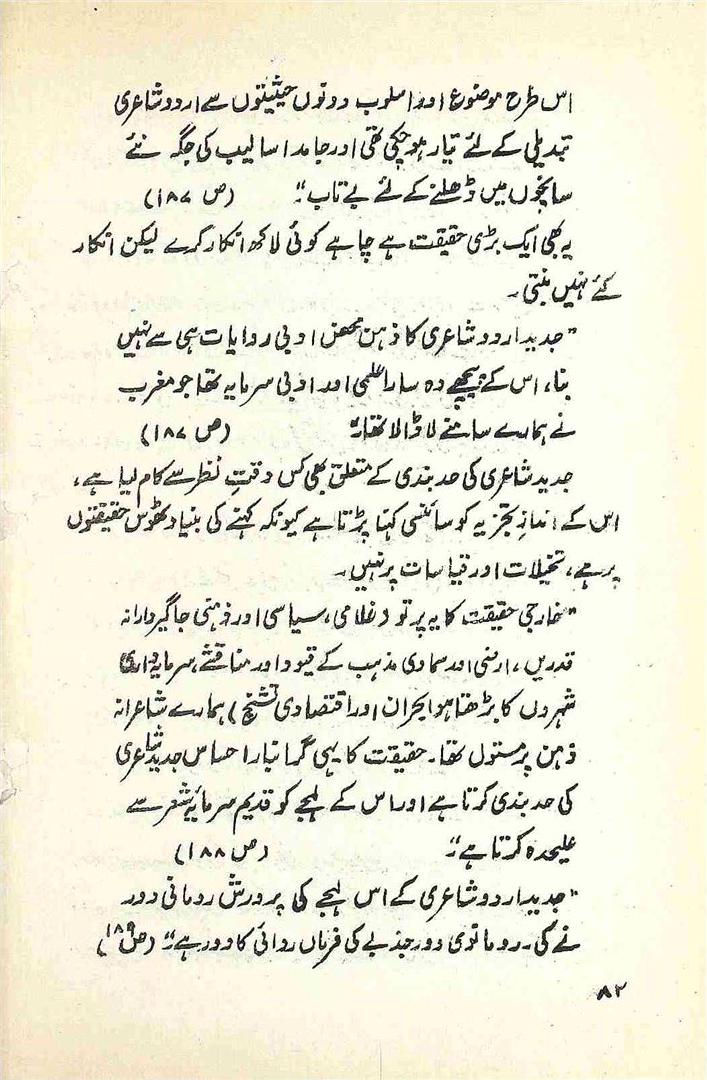 اس طرح موضوع اور اسلوب دونوں حیثیتوں سے اردو شاعری
تبدیلی کے لئے تیار ہو چکی تھی اور جامد اسالیب کی جگہ نئے
سانچوں میں ڈھلنے کے لئے بے تاب۔" (ص ۱۸۷)
یہ بھی ایک بڑی حقیقت ہے چاہے کوئی لاکھ انکار کرے لیکن انکار
کئے نہیں بنتی۔
"جدید اردو شاعری کا ذہن محض ادبی روایات ہی سے نہیں
بنا، اس کے پیچھے وہ سارا علمی اور ادبی سرمایہ تھا جو مغرب
نے ہمارے سامنے لا ڈالا تھا۔" (ص ۱۸۷)
جدید شاعری کی حد بندی کے متعلق بھی کس دقتِ نظر سے کام لیا ہے،
اس کے اندازِ تجزیہ کو سائنسی کہنا پڑتا ہے کیونکہ کہنے کی بنیاد ٹھوس حقیقتوں
پر ہے، تخیلات اور قیاسات پر نہیں۔
"خارجی حقیقت کا یہ پرتو (غلامی، سیاسی اور ذہنی جاگیردارانہ
قدریں، ارضی اور سماوی مذہب کے قیود اور مناقشے، سرمایہ داری
شہروں کا بڑھتا ہوا بحران اور اقتصادی تشنج) ہمارے شاعرانہ
ذہن پر مستول تھا۔ حقیقت کا یہی گرانبار احساس جدید شاعری
کی حد بندی کرتا ہے اور اس کے لہجے کو قدیم سرمایۂ شعر سے
علیحدہ کرتا ہے۔" (ص ۱۸۸)
"جدید اردو شاعری کے اس لہجے کی پرورش رومانی دور
نے کی۔ رومانوی دور جذبے کی فرماں روائی کا دور ہے۔" (ص ۱۸۹)
۸۲